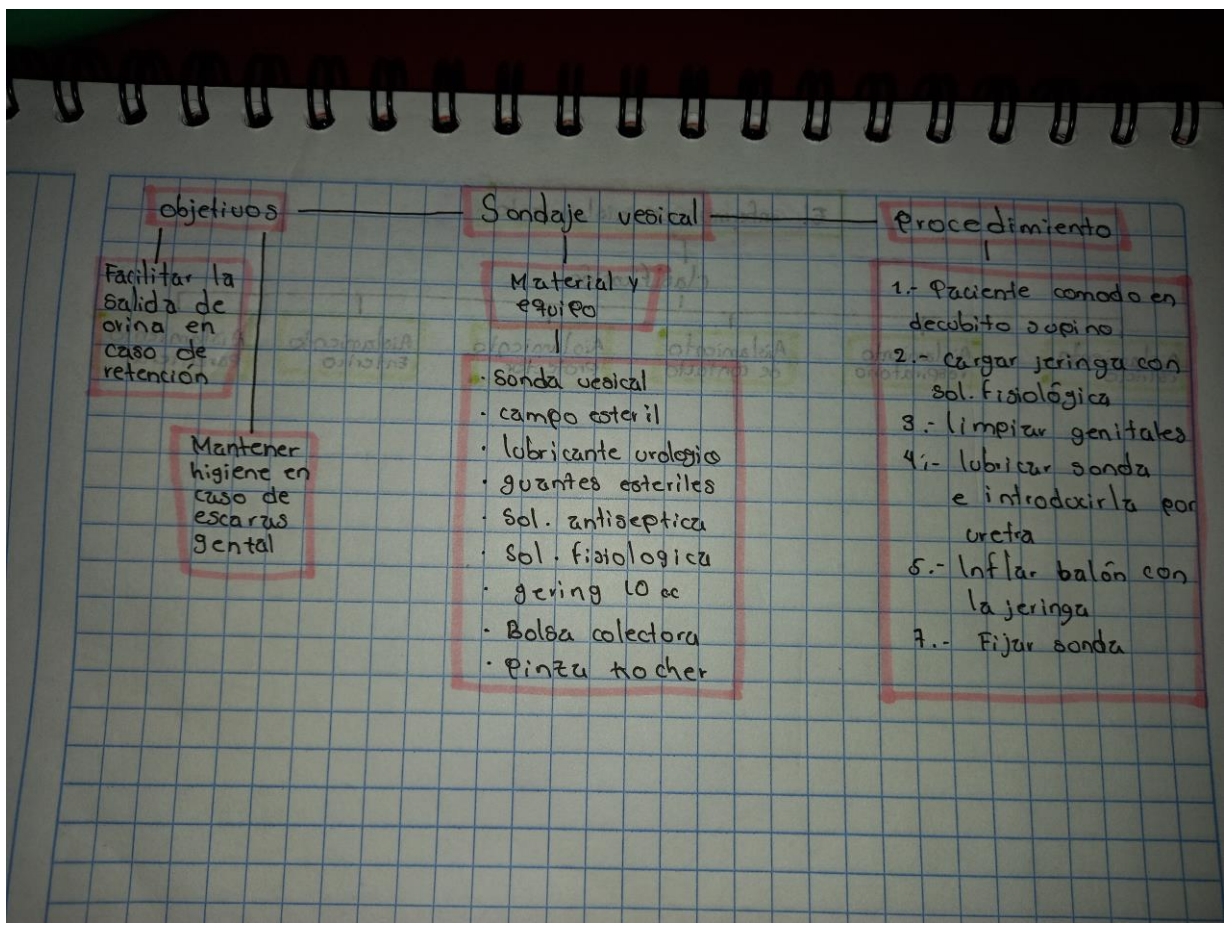 objetivos
Facilitar la
salida de
orina en
caso de
retención
Mantener
higiene en
caso de
escaras
gental
Sondaje vesical
Material y
equipo
· sonda vesical
· campo esteril
· lubricante urologico
· guantes esteriles
· Sol. antiseptica
· Sol. fisiologica
· gering 10 cc
· Bolsa colectora
· pinza kocher
Procedimiento
1.- Paciente comodo en
decubito supino
2.- Cargar jeringa con
sol. fisiológica
3.- limpiar genitales
4.- lubricar sonda
e introducirla por
uretra
5.- Inflar balón con
la jeringa
7.- Fijar sonda